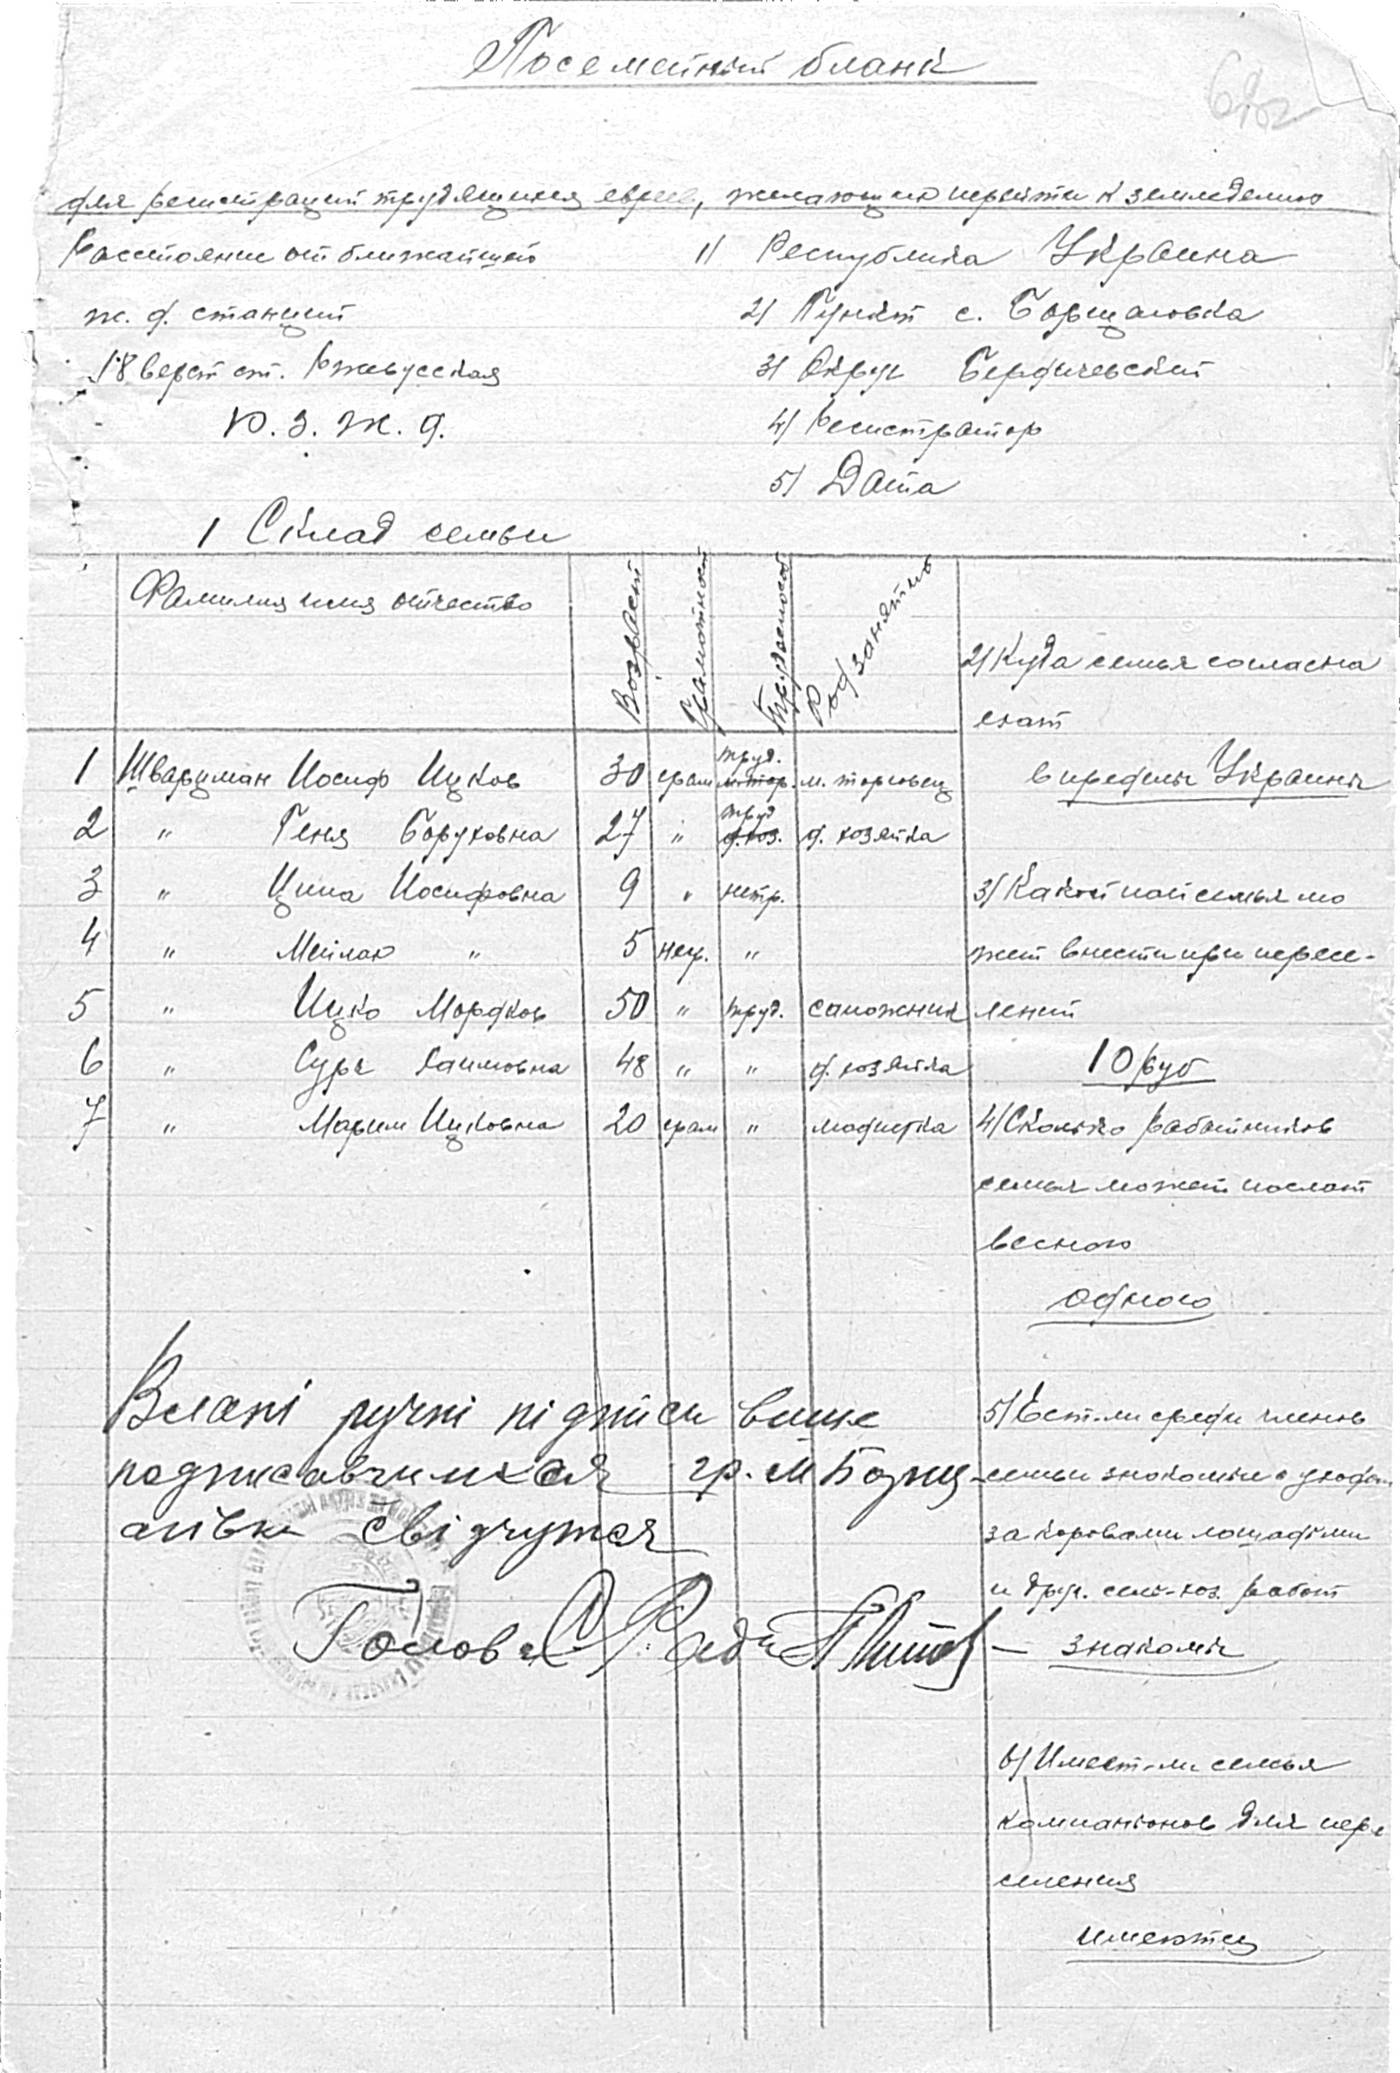 Посемейний бланк
для регистраций трудящихся евреев, желающих перейти к земледелию
Расстояние от ближайшей
ж. д. станций
18 верст ст. Ржевусская
Ю. З. Ж. Д.
1/ Республика Украина
2/ Пункт с. Борщаговка
3/ Округ Бердичевский
4/ Регистратор
5/ Дата
1 Склад семьи
Фамилия имя отчество Возраст Грамотност Трудоспособ Род занятия
1 Шварцман Иосиф Ицков 30 грам труд. м. торг. м. торговец
2 " Геня Боруховна 27 " труд д. хоз. д. хозяйка
3 " Ципа Иосифовна 9 " нетр.
4 " Мейлах " 5 негр. "
5 " Ицко Мордков 50 " труд. сапожник
6 " Сура Хаимовна 48 " " д. хозяйка
7 " Марим Ицковна 20 грам " модистка
2/ Куда семья согласна
ехат
в пределы Украины
3/ Какой пай семья мо
жет внести при пересе-
лений
10 руб
4/ Сколько работников
семья может послат
весною
одного
5/ Ест-ли среди членов
семьи знакомые с уходом
за коровами лошадьми
и друг. сель-хоз. работ
— знакомы
6/ Имеет-ли семья
компанионов для пере
селения
имеются
Власні ручні підписи више
подписавчихся гр. м Борщ-
агівки свідчуться
Голова С/Ради